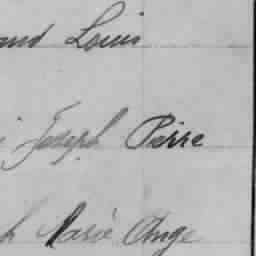 and Louis
Joseph Pierre
h Marie Ange